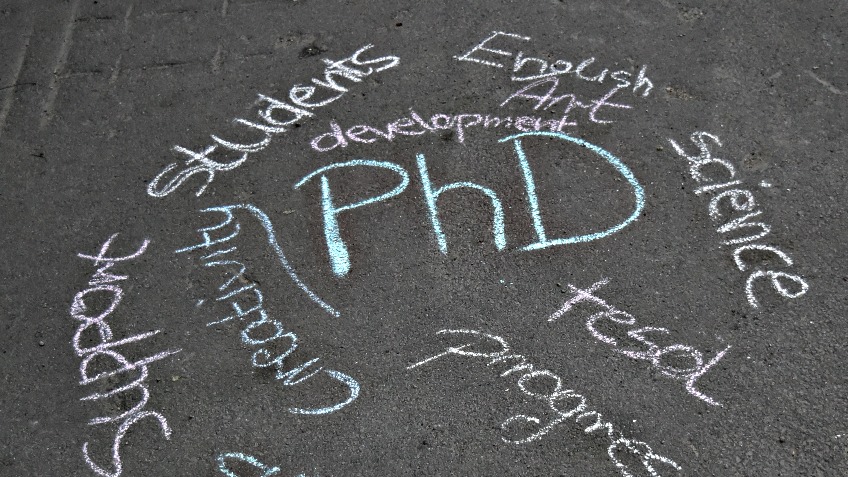 Students
English
Art
development
PhD
science
Creativity
support
tesol
Progre